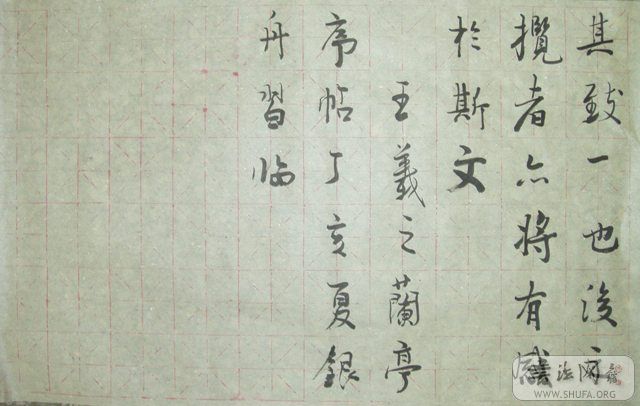 其致一也後之
攬者亦将有感
於斯文
王羲之蘭亭
序帖丁亥夏銀
舟習临
書法网
WWW.SHUFA.ORG